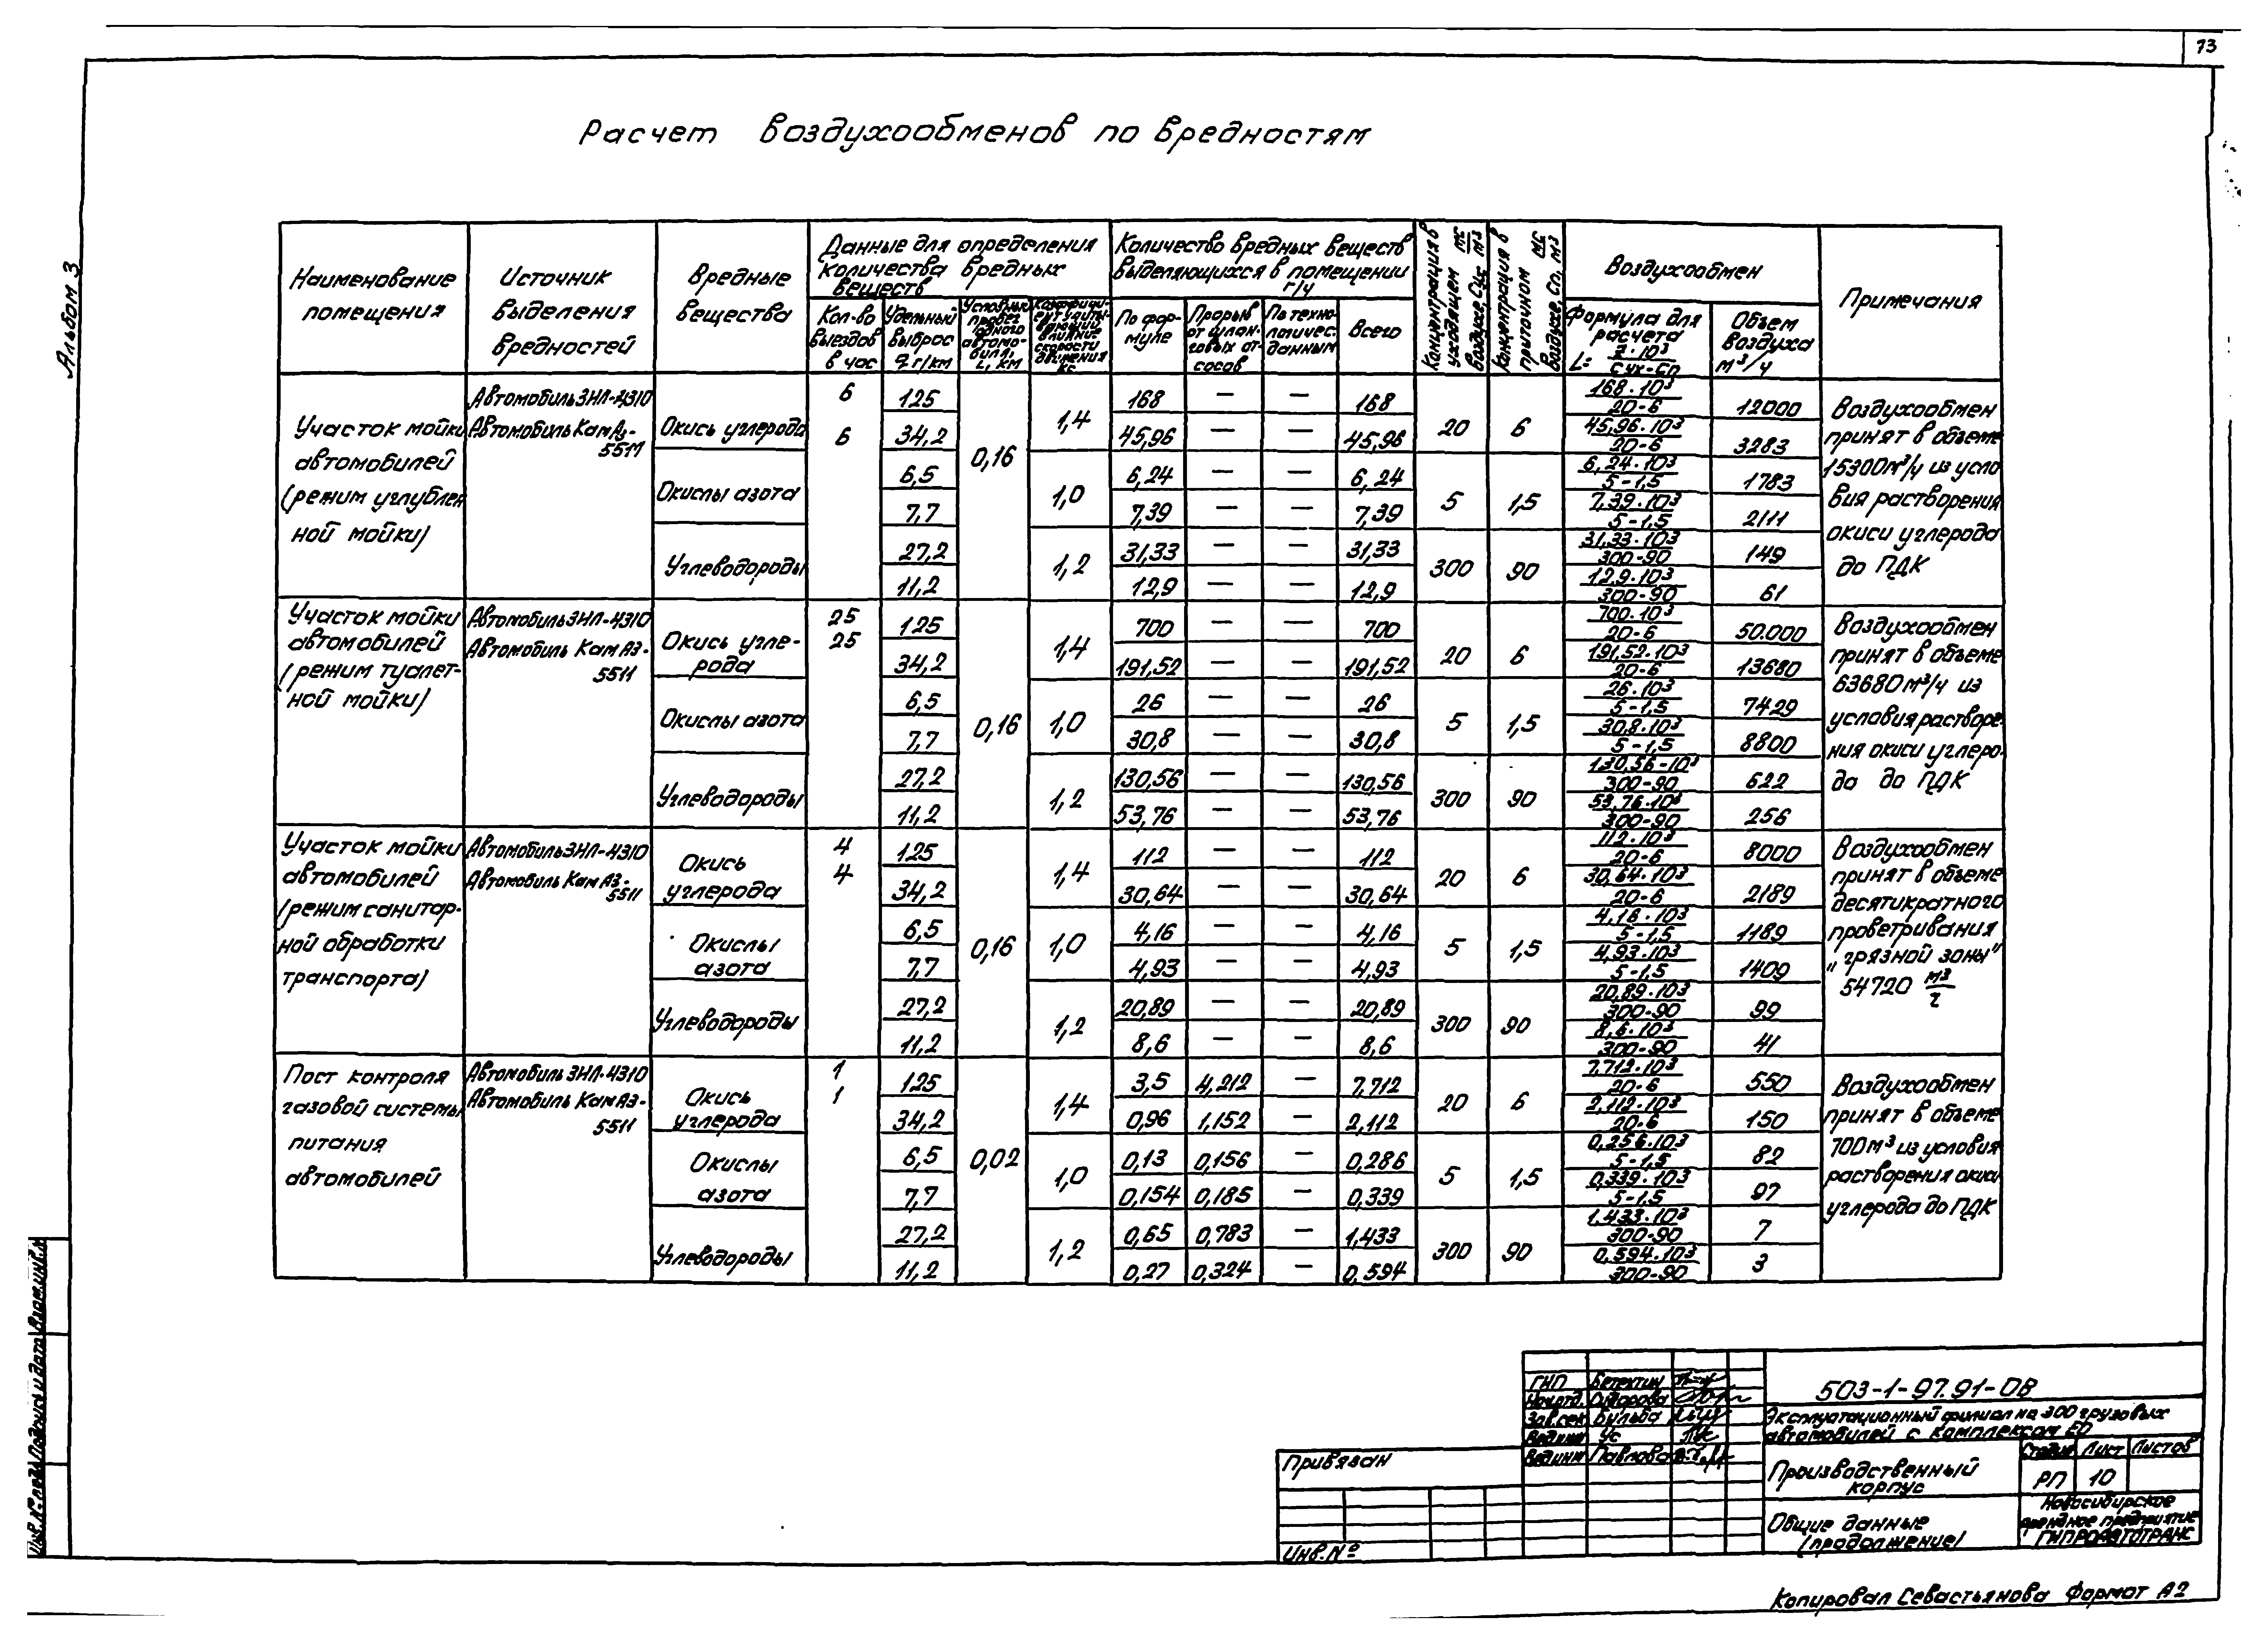 13
Альбом 3
Расчет воздухообменов по вредностям
Наименование помещения
Источник выделения вредностей
Вредные вещества
Данные для определения количества вредных веществ
Кол-во выездов в час
Удельный выброс q г/км
Условный пробег одного автомобиля, L, км
Коэффициент учитывающий влияние скорости движения Kc
Количество вредных веществ выделяющихся в помещении г/ч
По формуле
Прорыв от шланговых отсосов
По технологичес. данным
Всего
Концентрация в уходящем воздухе, Сух мг/м3
Концентрация в приточном воздухе, Сп, мг/м3
Воздухообмен
Формула для расчета L= z·10³ / Сух-Сп
Объем воздуха м³/ч
Примечания
Участок мойки автомобилей (режим углубленной мойки)
Автомобиль ЗИЛ-4310
Автомобиль КамАз-5511
6
6
0,16
Окись углерода 1,4 20 6
125 168 — — 168 168·10³ / 20-6 12000
34,2 45,96 — — 45,96 45,96·10³ / 20-6 3283
Окислы азота 1,0 5 1,5
6,5 6,24 — — 6,24 6,24·10³ / 5-1,5 1783
7,7 7,39 — — 7,39 7,39·10³ / 5-1,5 2111
Углеводороды 1,2 300 90
27,2 31,33 — — 31,33 31,33·10³ / 300-90 149
11,2 12,9 — — 12,9 12,9·10³ / 300-90 61
Воздухообмен принят в объеме 15300м³/ч из условия растворения окиси углерода до ПДК
Участок мойки автомобилей (режим туалетной мойки)
Автомобиль ЗИЛ-4310
Автомобиль КамАЗ-5511
25
25
0,16
Окись углерода 1,4 20 6
125 700 — — 700 700·10³ / 20-6 50.000
34,2 191,52 — — 191,52 191,52·10³ / 20-6 13680
Окислы азота 1,0 5 1,5
6,5 26 — — 26 26·10³ / 5-1,5 7429
7,7 30,8 — — 30,8 30,8·10³ / 5-1,5 8800
Углеводороды 1,2 300 90
27,2 130,56 — — 130,56 130,56-10³ / 300-90 622
11,2 53,76 — — 53,76 53,76·10³ / 300-90 256
Воздухообмен принят в объеме 63680м³/ч из условия растворения окиси углерода до ПДК
Участок мойки автомобилей (режим санитарной обработки транспорта)
Автомобиль ЗИЛ-4310
Автомобиль КамАЗ-5511
4
4
0,16
Окись углерода 1,4 20 6
125 112 — — 112 112·10³ / 20-6 8000
34,2 30,64 — — 30,64 30,64·10³ / 20-6 2189
Окислы азота 1,0 5 1,5
6,5 4,16 — — 4,16 4,16·10³ / 5-1,5 1189
7,7 4,93 — — 4,93 4,93·10³ / 5-1,5 1409
Углеводороды 1,2 300 90
27,2 20,89 — — 20,89 20,89·10³ / 300-90 99
11,2 8,6 — — 8,6 8,6·10³ / 300-90 41
Воздухообмен принят в объеме десятикратного проветривания "грязной зоны" 54720 м³/ч
Пост контроля газовой системы питания автомобилей
Автомобиль ЗИЛ-4310
Автомобиль КамАЗ-5511
1
1
0,02
Окись углерода 1,4 20 6
125 3,5 4,212 — 7,712 7,712·10³ / 20-6 550
34,2 0,96 1,152 — 2,112 2,112·10³ / 20-6 150
Окислы азота 1,0 5 1,5
6,5 0,13 0,156 — 0,286 0,256·10³ / 5-1,5 82
7,7 0,154 0,185 — 0,339 0,339·10³ / 5-1,5 97
Углеводороды 1,2 300 90
27,2 0,65 0,783 — 1,433 1,433·10³ / 300-90 7
11,2 0,27 0,324 — 0,594 0,594·10³ / 300-90 3
Воздухообмен принят в объеме 700м³ из условия растворения окиси углерода до ПДК
Инв.№ подл. Подпись и дата Взам.инв.№
Привязан
Инв.№
ГИП
Нач.отд. Сидорова
Зав.сек Бульба
Вединж Ус
Вединж Павлова
503-1-97.91-ОВ
Эксплуатационный филиал на 300 грузовых
автомобилей с комплексом ЕО
Производственный корпус
Стадия Лист Листов
РП 10
Общие данные
(продолжение)
Новосибирское
арендное предприятие
ГИПРОАВТОТРАНС
Копировал Севастьянова Формат А2